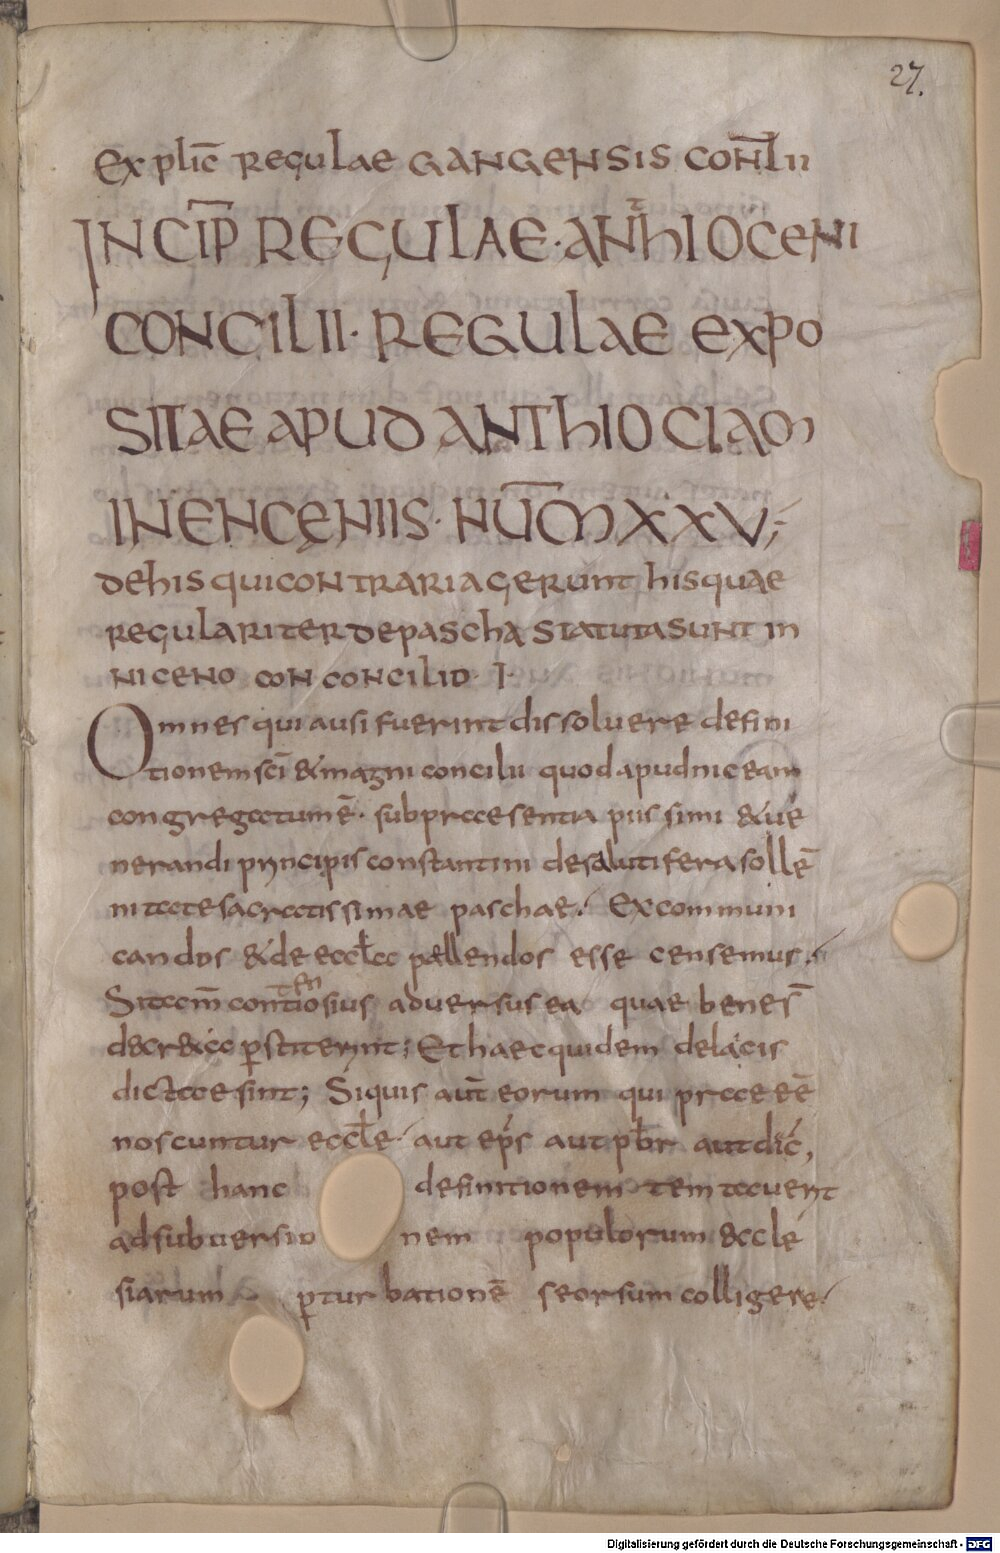 27.
Explic̄ regulae gangensis con̄lii
INCIP̄ REGULAE · ANTHIOCENI
CONCILII · REGULAE EXPO
SITAE APUD ANTHIOCIAM
IN ENCĘNIIS · NUM̄ XXV;
De his qui contraria gerunt his quae
regulariter de pascha statuta sunt in
niceno con concilio · I ·
Omnes qui ausi fuerint dissoluere defini
tionem sc̄i & magni concilii quod apud niceam
congregatum ē · sub praesentia piissimi & ue
nerandi principis constantini de salutifera sollē
nitate sacratissimae paschae · Excommuni
candos & de eccła pellendos esse censemus ·
Si tam̄ contiosius aduersus ea quae bene s̄
ten
decr&a p̱stiterint; Et haec quidem de laicis
dicta sint; Siquis aut̄ eorum qui praeeē
noscuntur eccłe · aut ep̄s aut pb̄r aut diac̄,
post hanc definitionem temtauerit
ad subuersionem populorum & eccle
siarum p̱turbationē seorsum colligere ·
Digitalisierung gefördert durch die Deutsche Forschungsgemeinschaft - DFG